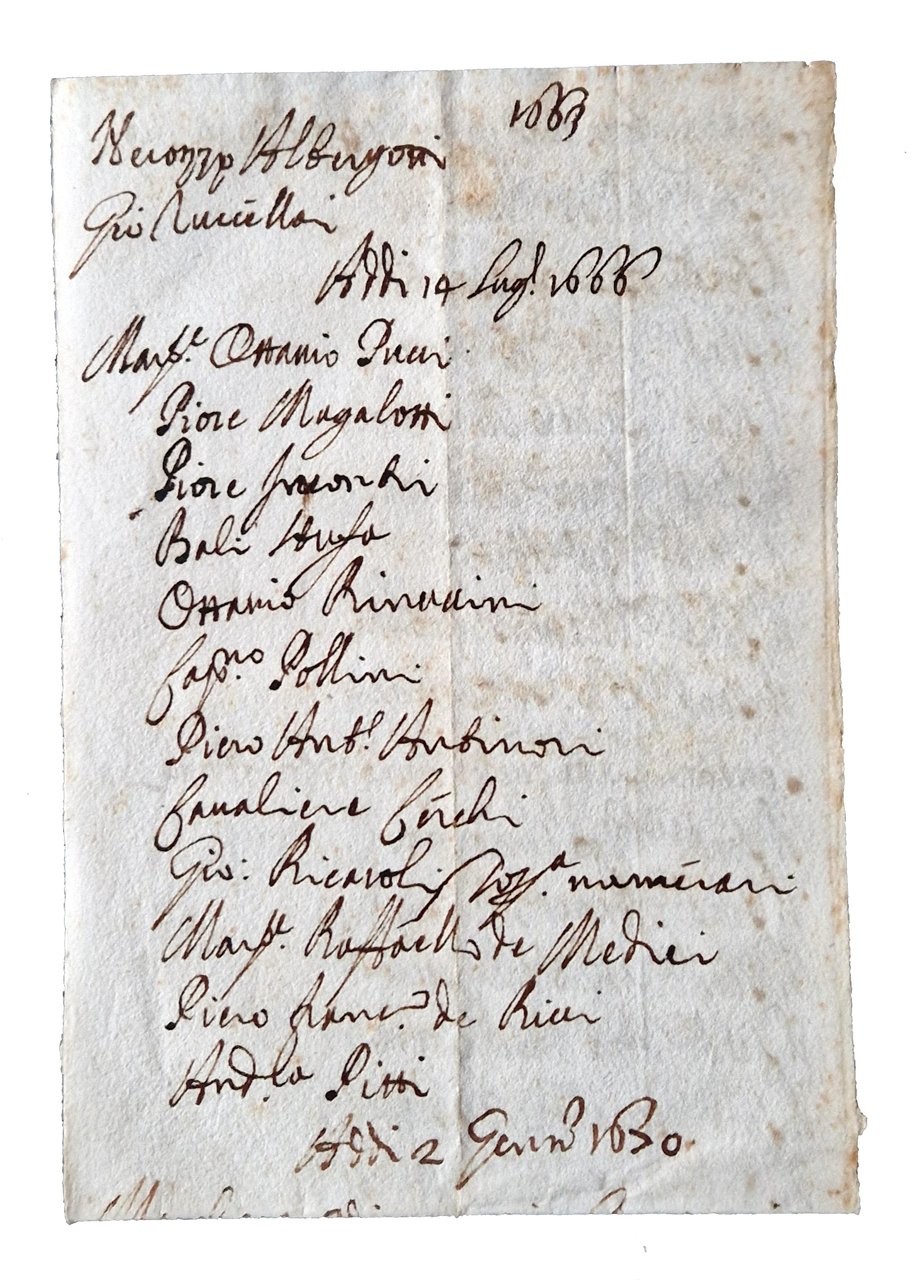 1663
Nerozzo Albergotti
Gio Rucellai
Addi 14 Lugl. 1666
March.e Ottavio Pucci
Priore Magalotti
Priore Incontri
Bali
Ottavio Rinuccini
Cap.no Pollini
Piero Ant.o Antinori
Cavaliere Cerchi
Gio: Ricasoli numerari
March.e Raffaello de Medici
Piero Franc.o de Ricci
And.ea Pitti
Addi 2 Genn.o 1630